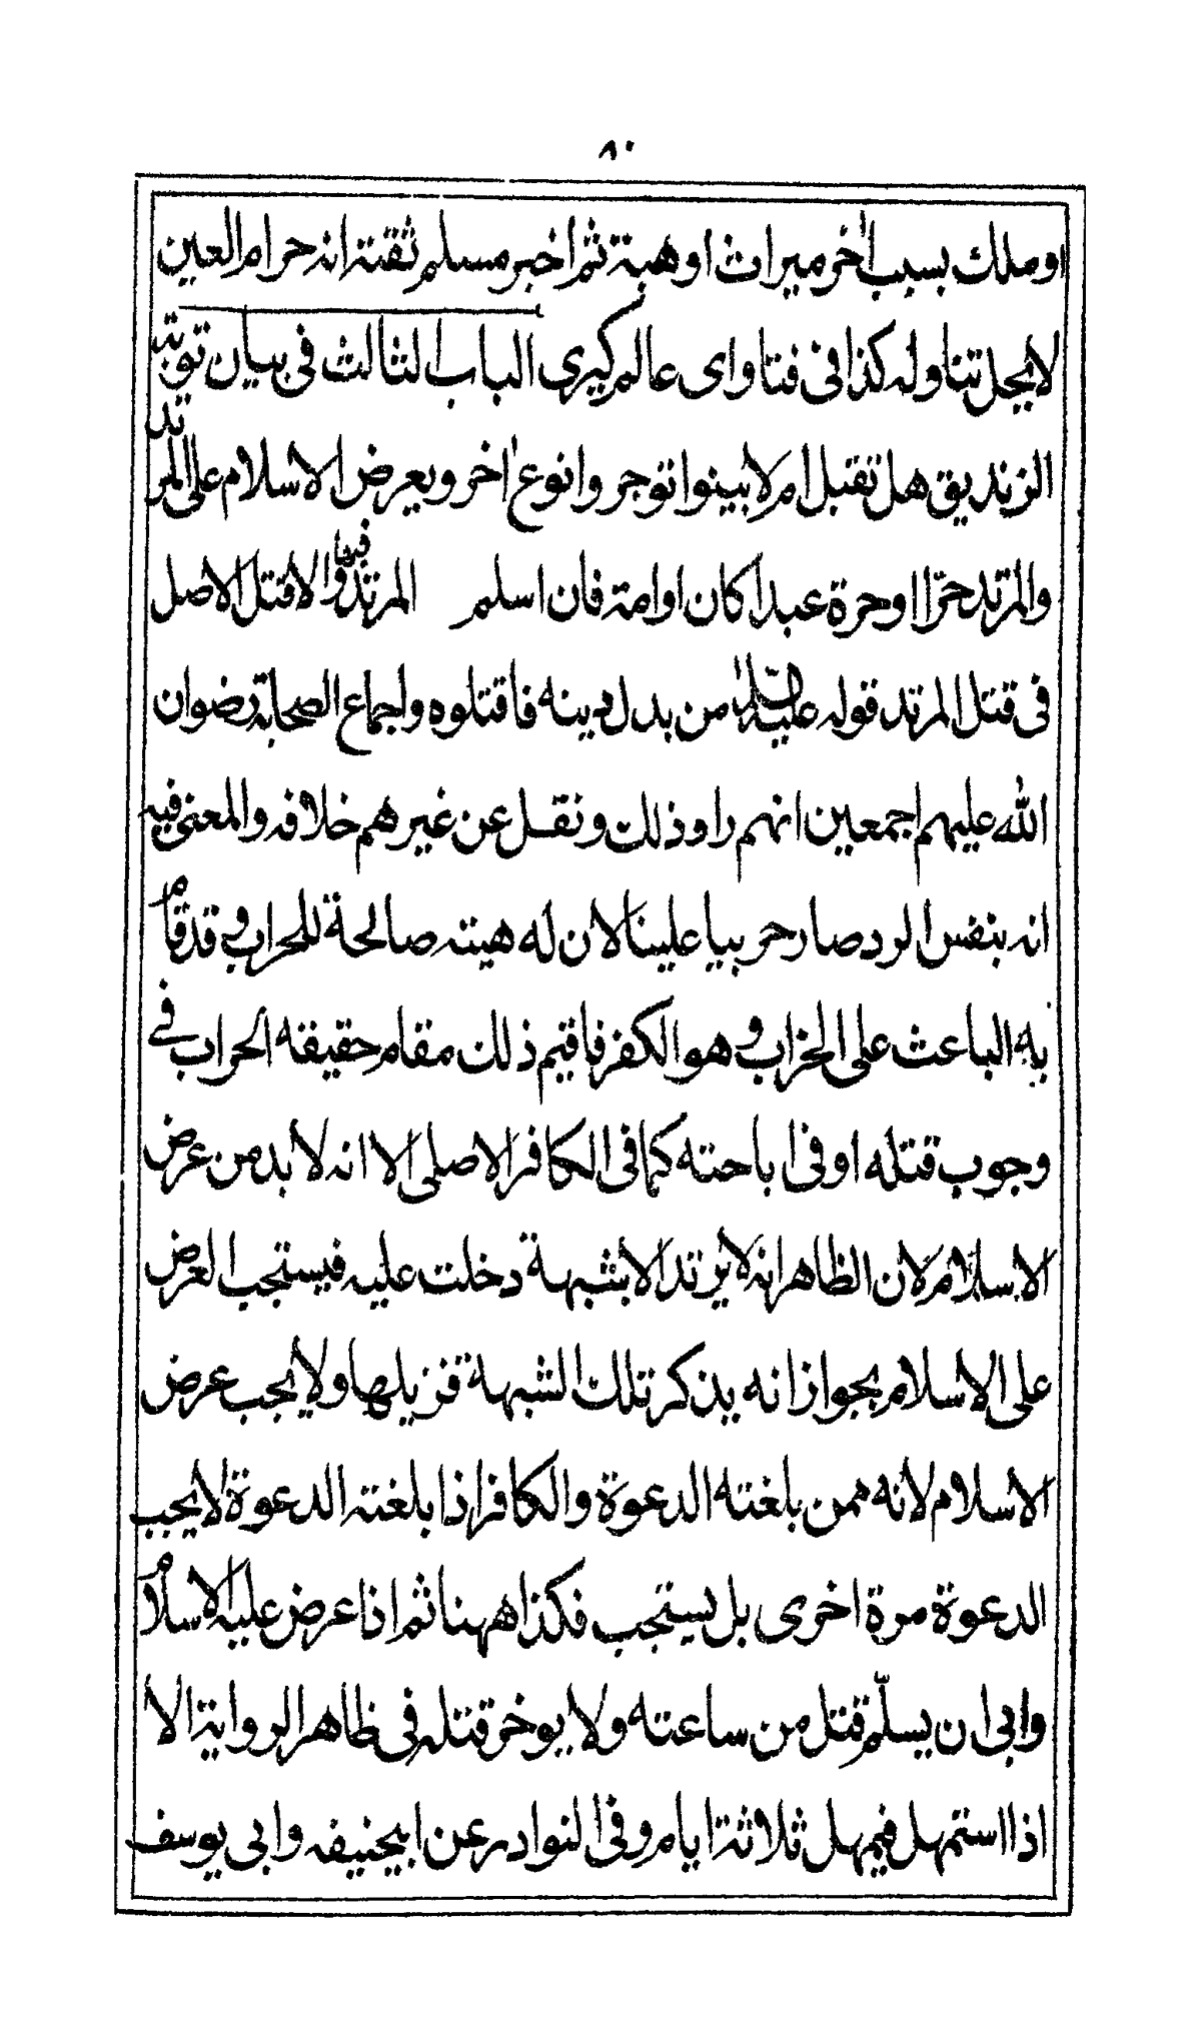 ٨٠
او ملك بسبب اٰخر ميراث او هبة ثم اخبر مسلم ثقته انه حرام العين
لا يحل تناوله كذا فى فتاواى عالم كيرى الباب الثالث فى بيان توبة
الزنديق هل تقبل ام لا بينوا توجروا نوع اٰخر ويعرض الاسلام على المرتد
والمرتد حرّا او حرة عبدا كان او امة فان اسلم المرتد فبها والا قتل الاصل
فى قتل المرتد قوله عليه السلام من بدل دينه فاقتلوه واجماع الصحابة رضوان
الله عليهم اجمعين انهم راو ذلك ونقل عن غيرهم خلافه والمعنى فيه
انه بنفس الرد صار حربيا علينا لان له هيته صالحة للحراب وقد قام
به الباعث على الحراب وهو الكفر فاقيم ذلك مقام حقيقه الحراب فى
وجوب قتله او فى اباحته كما فى الكافر الاصلى الا انه لا بد من عرض
الاسلام لان الظاهر انه لا يرتد الا بشبهة دخلت عليه فيستحب العرض
على الاسلام بجواز انه يذكر تلك الشبهة فنزيلها ولا يجب عرض
الاسلام لانه ممن بلغته الدعوة والكافر اذا بلغته الدعوة لا يجب
الدعوة مرة اخرى بل يستحب فكذا ههنا ثم اذا عرض عليه الاسلام
وابى ان يسلّم قتل من ساعته ولا يوخر قتله فى ظاهر الرواية الا
اذا استمهل فيمهل ثلاثة ايام وفى النوادر عن ابيحنيفه وابى يوسف